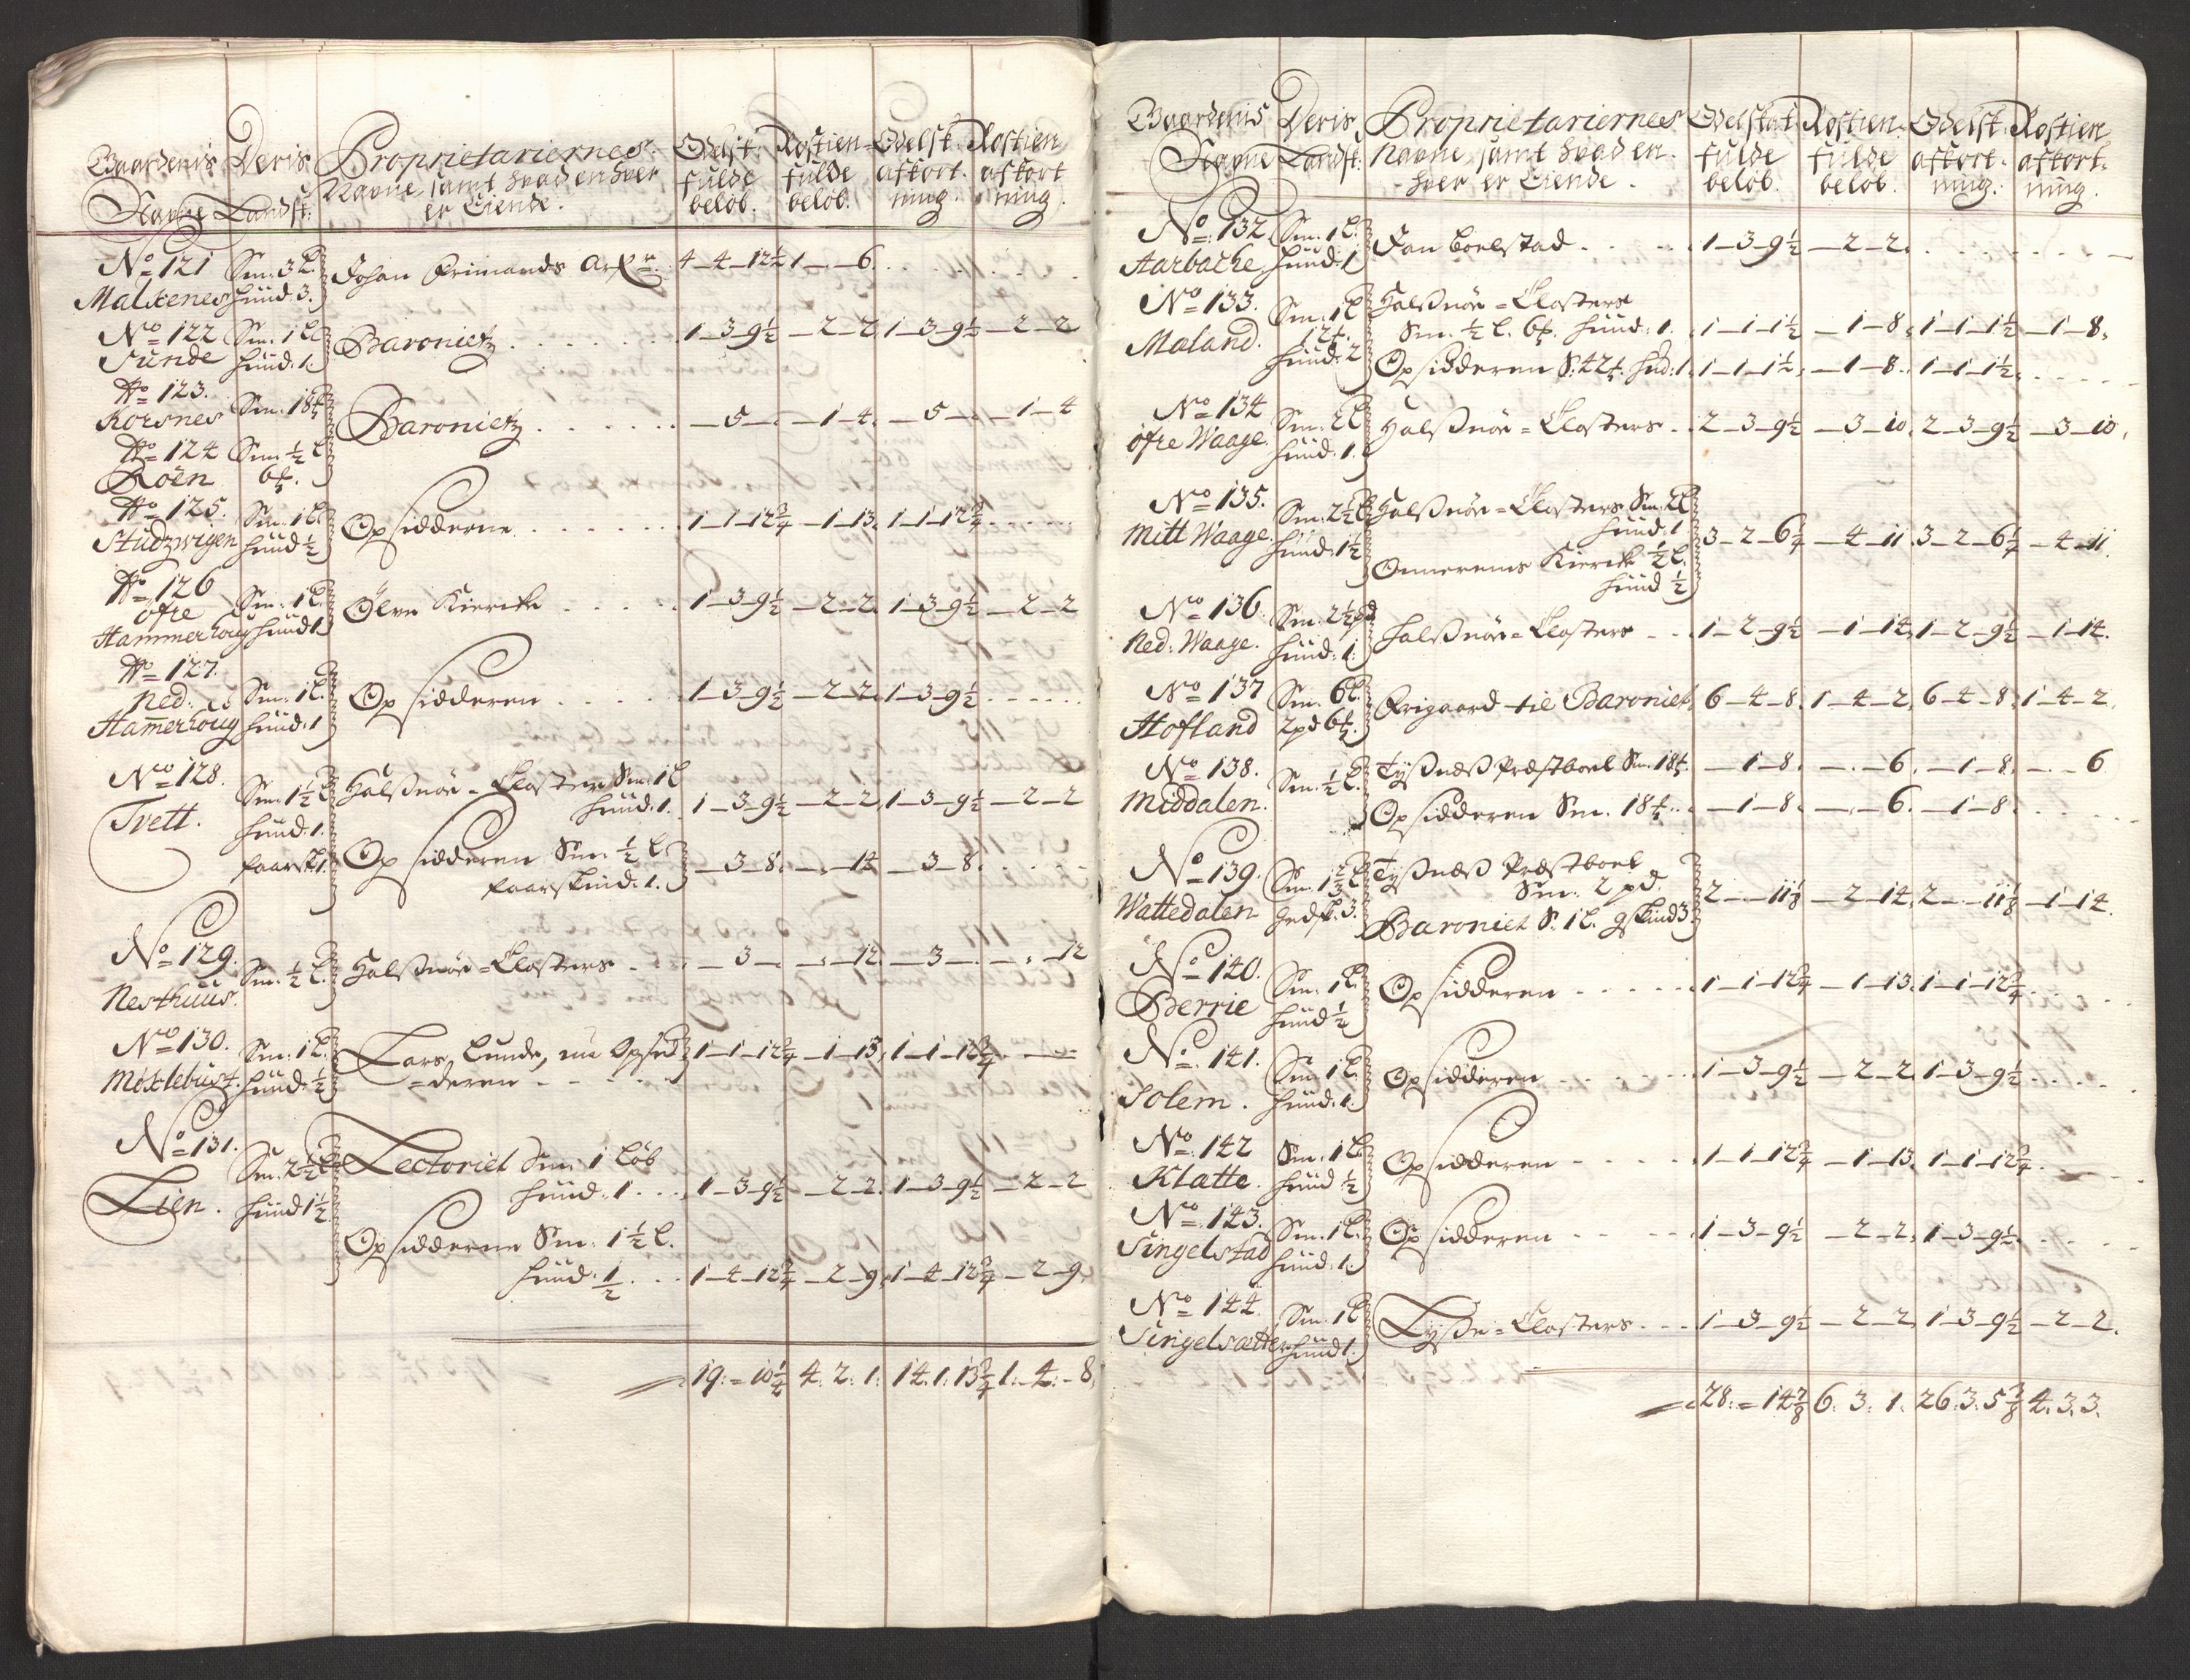 Gaardenis Deris Proprietariernes Odelst: Rostien- Odelst. Rostien
Nafne Landsk: Navne, samt hvad enhver fulde fulde afkort- afkort
er Eiende. belob. belob. ning. ning.
No 121 Sm: 3 l. Johan Frimands Arf: 4-4-12½ 1-"-6.
Malkenes hüüd. 3.
No 122 Sm. 1 l. Baronietz 1-3-9½ -2-2 1-3-9½ -2-2
Sünde hüüd. 1.
No 123. Sm. 18 Baronietz -5-. -1-4. -5-. -1-4
Korsnes
No 124 Sm ½ l
Röen 6
No 125. Sm. 1 l. Opsidderne 1-1-12¾ -1-13. 1-1-12¾
Stüdzwigen hüüd ½
No 126 Sm. 1 l. Ölve Kiercke 1-3-9½ -2-2. 1-3-9½ -2-2
öfre
Hammerhoug hüüd 1
No 127. Sm. 1 l. Opsidderen 1-3-9½ -2-2. 1-3-9½
Ned:
Hamerhoug hüüd. 1
No 128. Sm. 1½ l Halsnöe-Closters Sm. 1 l
Tvett. hüüd. 1. hüüd. 1. 1-3-9½ -2-2. 1-3-9½ -2-2
faarsk 1. Opsidderen Sm. ½ l -3-8. -.-14 -3-8.
faarskind. 1.
No 129. Sm. ½ l. Halsnöe-Closters -3-. -.-12. -3-. -.-12
Nesthuus.
No 130. Sm. 1 l. Lars Lunde, nu Opsid 1-1-12¾ -1-13 1-1-12¾
Möxlebust. hüüd. ½ =deren
No 131. Sm. 2½ l Lectoriet Sm. 1 Löb
Lien. hüüd 1½ hüüd. 1 1-3-9½ -2-2. 1-3-9½ -2-2
Opsidderne Sm. 1½ l.
hüüd. ½ 1-4-12¾ -2-9. 1-4-12¾ -2-9.
19:=10¼ 4. 2. 1. 14. 1. 13¾ 1:-4:-8.
Gaardenis Deris Proprietariernes Odelskat Rostien- Odelst. Rostien
Nafne Landsk: Navne, samt hvad en- fulde fulde afkort- afkort-
hver er Eiende. belob. belob. ning. ning.
No 132 Sm. 1 l. Jan Boelstad 1-3-9½ -2-2.
Aarbacke hüüd. 1
No 133. Sm. 1 l Halsnöe-Closters
Maland. 12 Sm. ½ l. 6 hüüd. 1. 1-1-1½ -1-8. 1-1-1½ -1-8.
hüüd. 2 Opsidderen S: 42 hüd: 1. 1-1-1½ -1-8. 1-1-1½
No 134 Sm. 2 l Halsnöe-Closters 2-3-9½ -3-10. 2-3-9½ -3-10.
öfre Waage. hüüd. 1.
No 135. Sm. 2½ l Halsnöe-Closters Sm. 2 l
Mitt Waage. hüüd. 1½ hüüd. 1 3-2-6¼ -4-11. 3-2-6¼ -4-11.
Onnerems Kiercke ½ l.
hüüd ½
No 136. Sm. 2½ pd Halsnöe-Closters 1-2-9½ -1-14. 1-2-9½ -1-14.
Ned: Waage. hüüd. 1.
No 137 Sm. 6 l. Frigaard til Baroniet. 6-4-8. 1-4-2. 6-4-8. 1-4-2.
Hofland 2 pd 6
No 138. Sm. ½ l. Tysnæs Præstboel Sm. 18. -1-8. -.-6. -1-8. -.-6
Middalen. Opsidderen Sm. 18 -1-8. -.-6. -1-8.
No 139. Sm. 1⅔ l Tysnæs Præstboel
Wattedalen gedsk. 3. Sm. 2 pd. 2-.-11⅛ -2-14. 2-.-11⅛ -1-14.
Baroniet S. 1 l. gskind 3
No 140. Sm. 1 l. Opsidderen 1-1-12¾ -1-13. 1-1-12¾
Berrie hüüd ½
No 141. Sm. 1 l. Opsidderen 1-3-9½ -2-2. 1-3-9½
Solem. hüüd. 1.
No 142 Sm. 1 l. Opsidderen 1-1-12¾ -1-13. 1-1-12¾
Klatte. hüüd ½
No 143. Sm. 1 l. Opsidderen 1-3-9½ -2-2. 1-3-9½
Singelstad hüüd. 1.
No 144. Sm. 1 l Lyse-Closters 1-3-9½ -2-2. 1-3-9½ -2-2.
Singelsætter hüüd 1.
28:=14⅞ 6. 3. 1. 26. 3. 5⅜ 4. 3. 3.